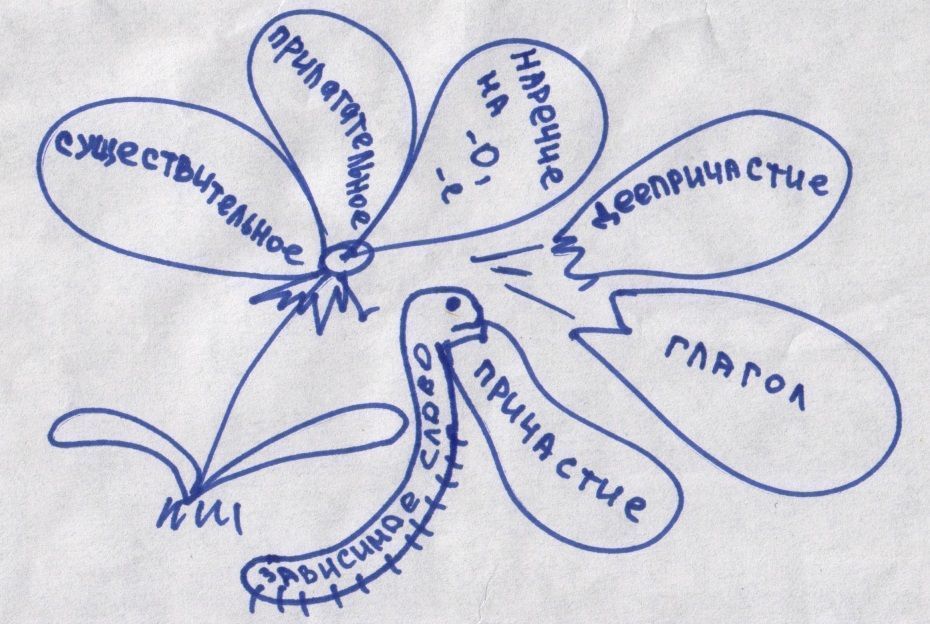 существительное
прилагательное
наречие
на
-о,
-е
деепричастие
глагол
причастие
зависимое слово